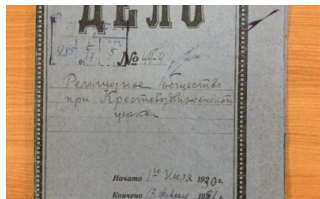 ДЕЛО
№
Религиозное общество
при Крестовоздвиженской
церкви
Начато 1го Июля 1920 г.
Кончено 1921 г.